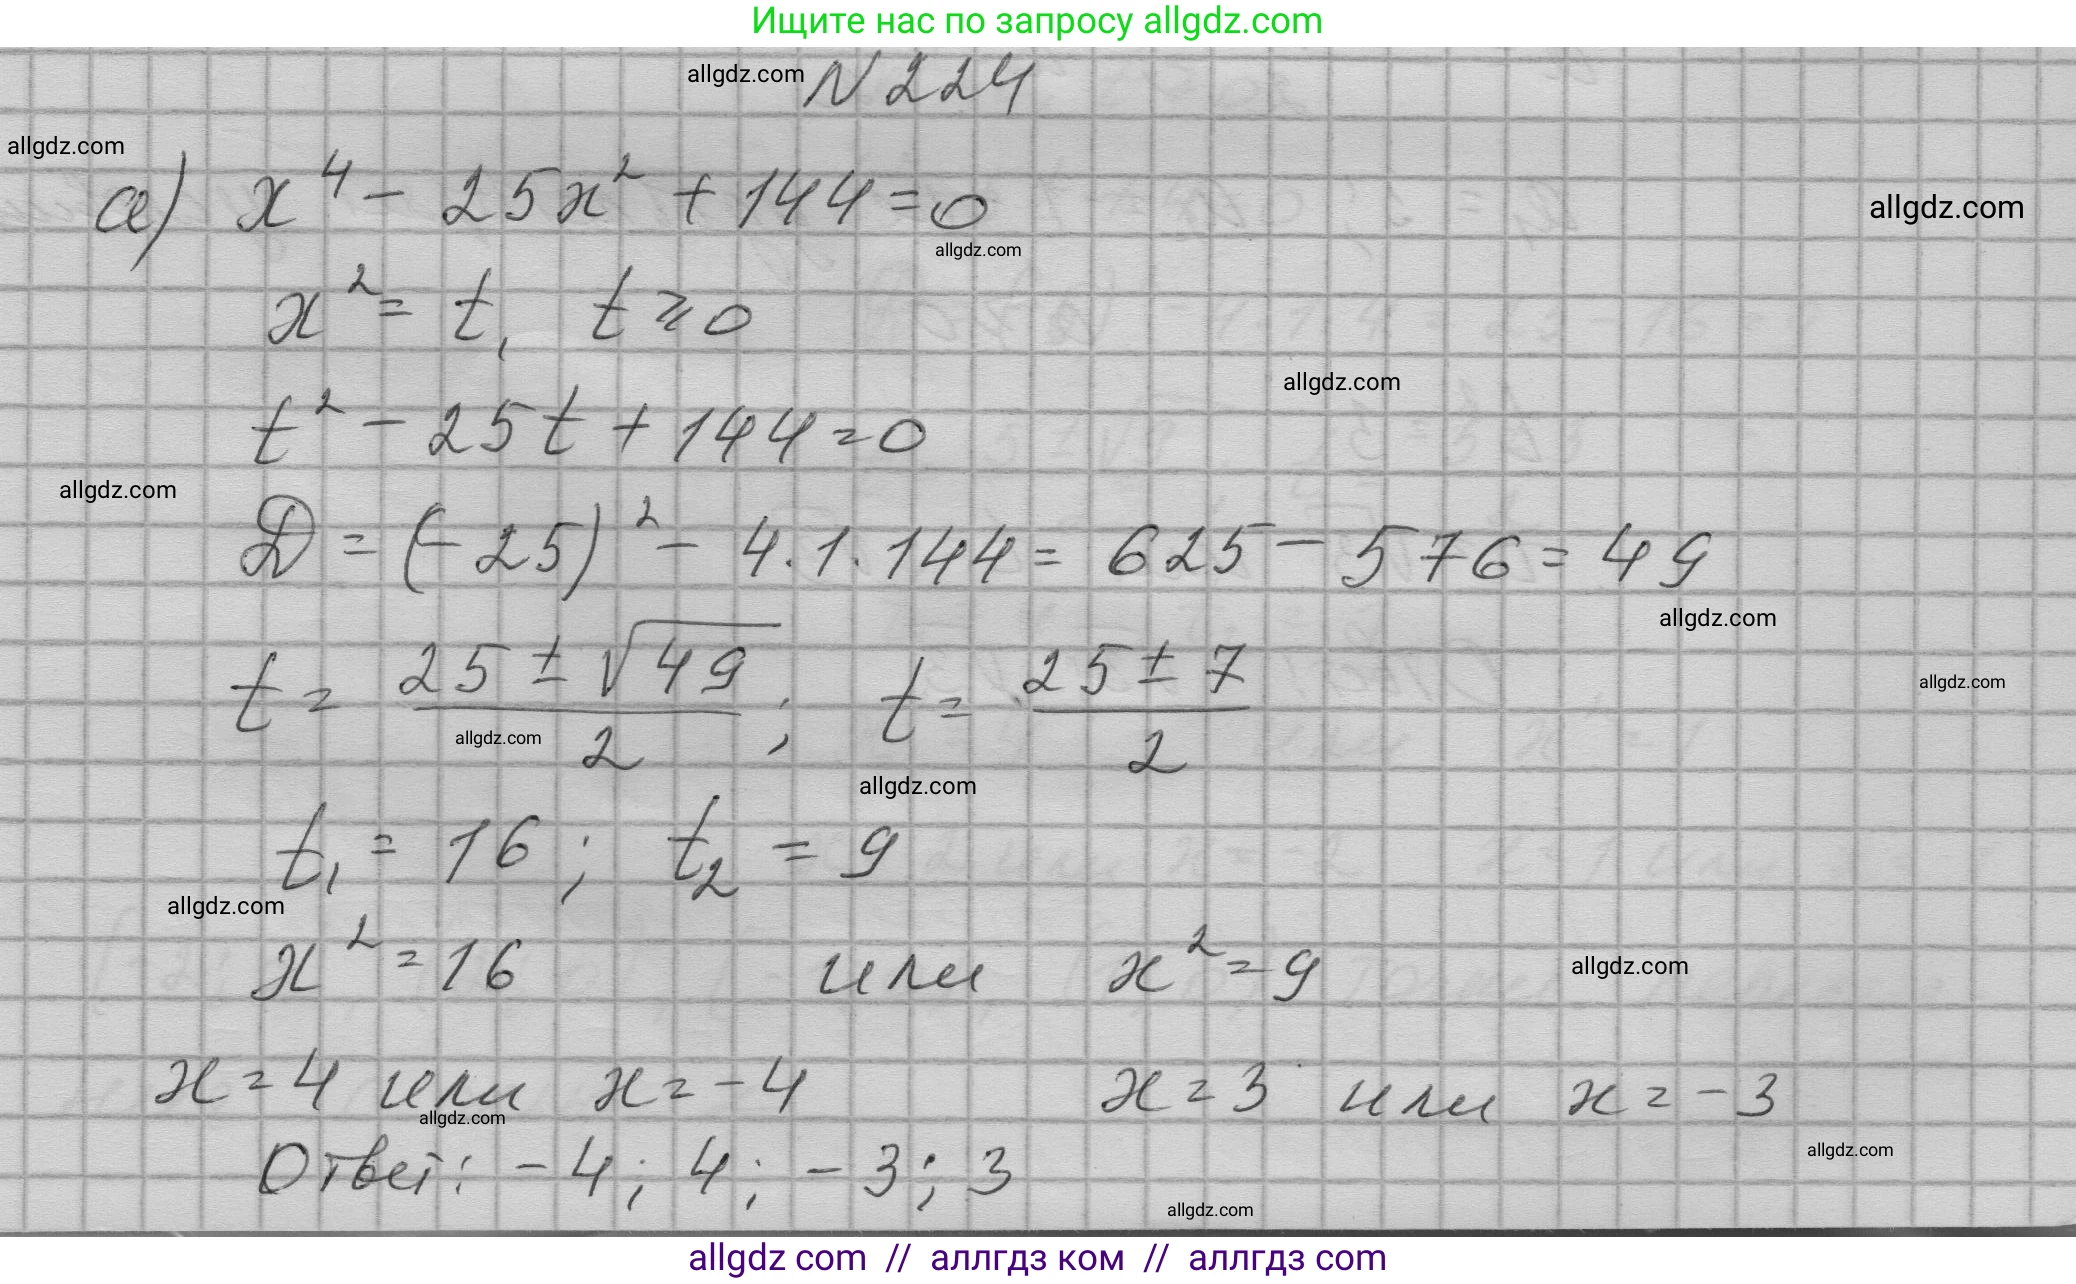 Ищите нас по запросу allgdz.com
allgdz.com N 224
allgdz.com
а) x⁴ - 25x² + 144 = 0
allgdz.com
allgdz.com
x² = t, t ⩾ 0
allgdz.com
t² - 25t + 144 = 0
allgdz.com
D = (-25)² - 4·1·144 = 625 - 576 = 49
allgdz.com
t = (25 ± √49)/2; t = (25 ± 7)/2
allgdz.com
allgdz.com
allgdz.com
t₁ = 16; t₂ = 9
allgdz.com
x² = 16 или x² = 9
allgdz.com
x = 4 или x = -4 x = 3 или x = -3
allgdz.com
Ответ: -4; 4; -3; 3
allgdz.com
allgdz.com
allgdz com // аллгдз ком // аллгдз com